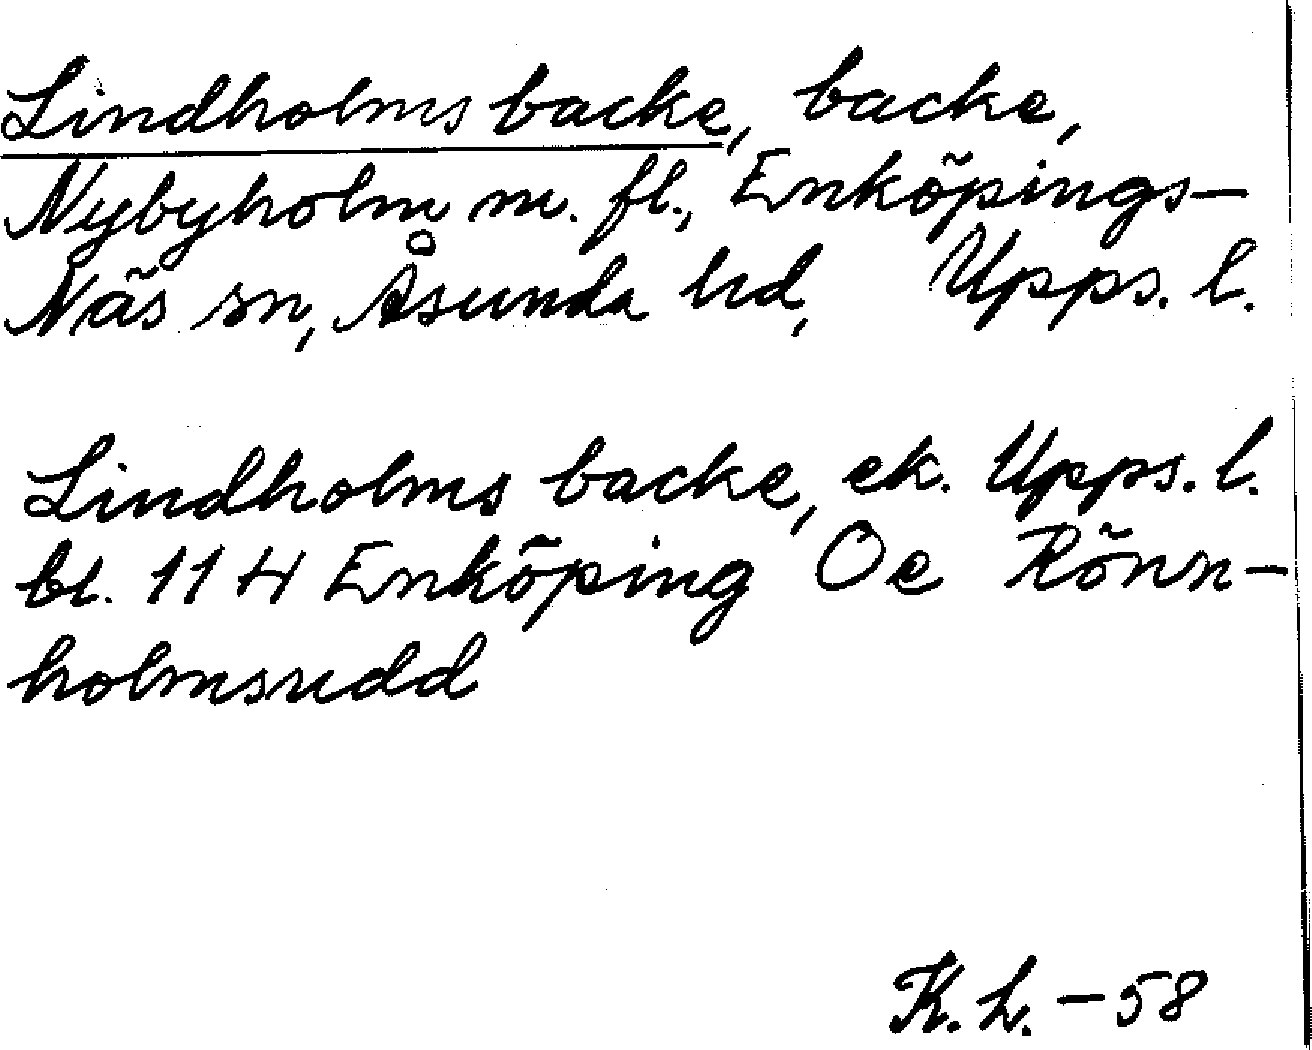 Lindholms backe, backe,
Nybyholm m. fl., Enköpings-
Näs sn, Åsunda hd, Upps. l.
Lindholms backe, ek. Upps. l.
bl. 11 H Enköping Oe Rönn-
holmsudd
K. L. - 58